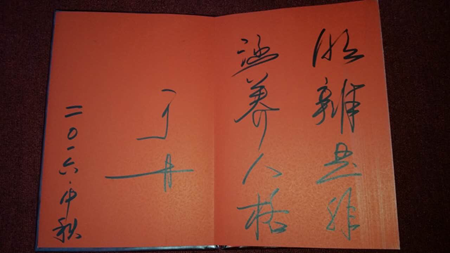 明辨是非
涵养人格
于丹
二〇一六·中秋